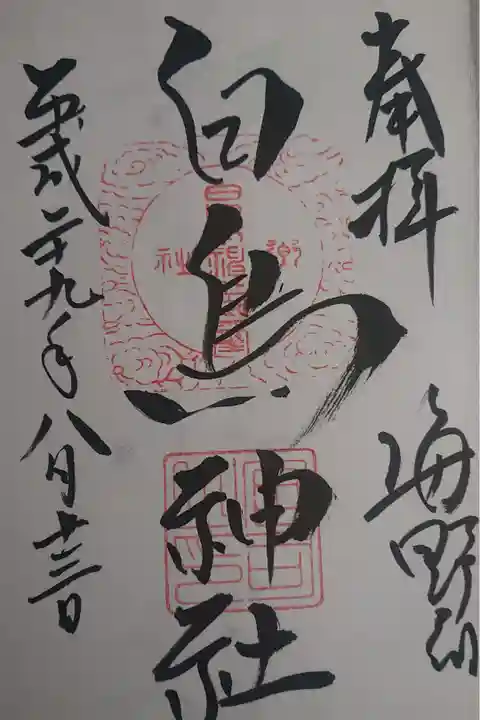 奉拝
海野郷
白鳥神社
平成二十九年八月十三日
郷
社